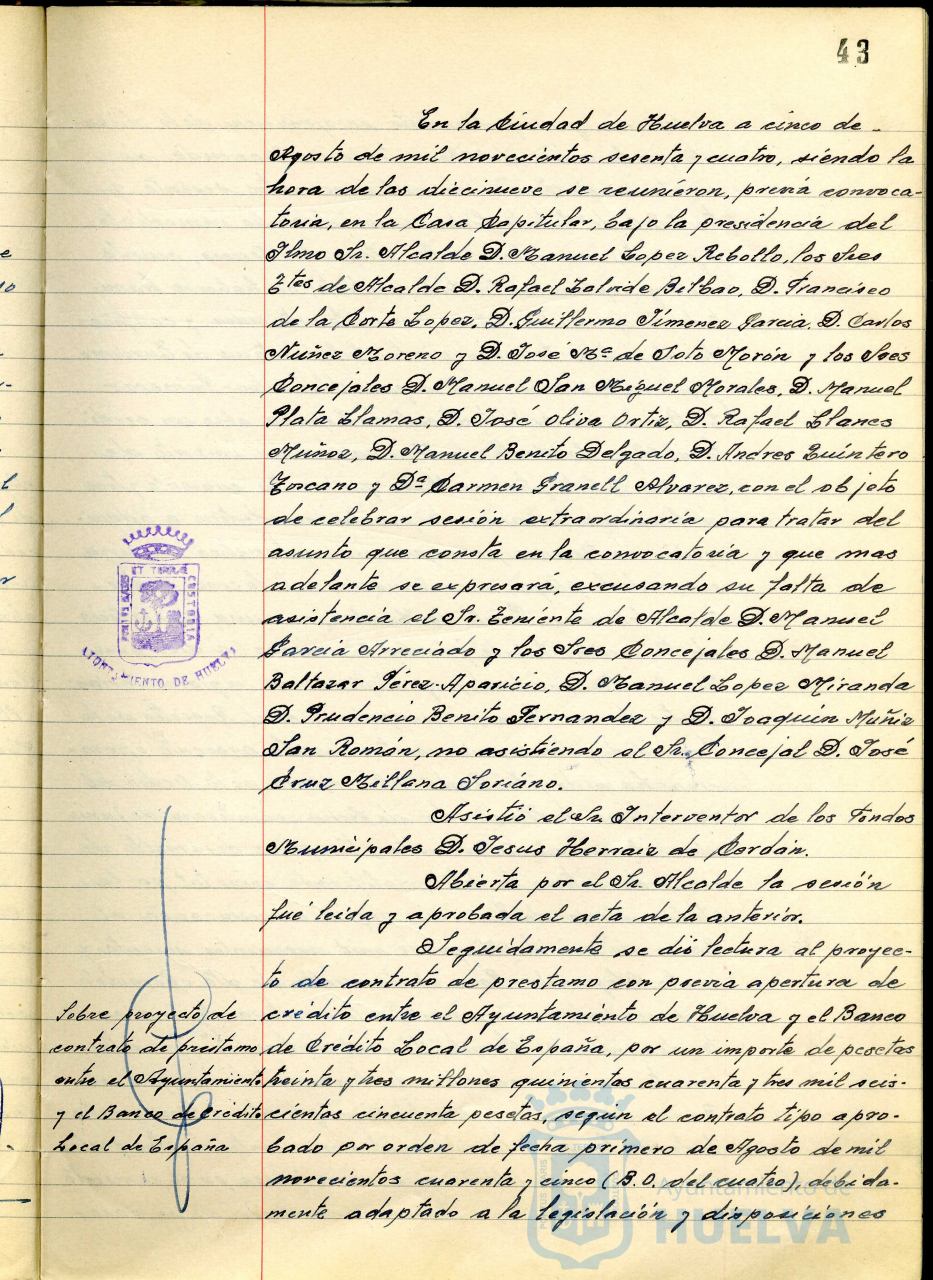 43
En la Ciudad de Huelva a cinco de
Agosto de mil novecientos sesenta y cuatro, siendo la
hora de las diecinueve se reunieron, previa convoca-
toria, en la Casa Capitular, bajo la presidencia del
Ilmo Sr. Alcalde D. Manuel Lopez Rebollo, los Sres
Ttes de Alcalde D. Rafael Zalvide Bilbao, D. Francisco
de la Corte Lopez, D. Guillermo Jimenez Garcia, D. Carlos
Nuñez Moreno y D. José Mª de Soto Morón y los Sres
Concejales D. Manuel San Miguel Morales, D. Manuel
Plata Llamas, D. José Oliva Ortiz, D. Rafael Llanes
Muñoz, D. Manuel Benito Delgado, D. Andres Quintero
Toscano y Dª Carmen Granell Alvarez, con el objeto
de celebrar sesión extraordinaria para tratar del
asunto que consta en la convocatoria y que mas
adelante se expresará, excusando su falta de
asistencia el Sr. Teniente de Alcalde D. Manuel
Garcia Arreciado y los Sres Concejales D. Manuel
Baltazar Pérez-Aparicio, D. Manuel Lopez Miranda
D. Prudencio Benito Fernandez y D. Joaquin Muñiz
San Román, no asistiendo el Sr. Concejal D. José
Cruz Millana Soriano.
Asistió el Sr. Interventor de los Fondos
Municipales D. Jesus Herraiz de Cordán.
Abierta por el Sr. Alcalde la sesión
fué leida y aprobada el acta de la anterior.
Seguidamente se dió lectura al proyec-
to de contrato de prestamo con previa apertura de
crédito entre el Ayuntamiento de Huelva y el Banco
de Crédito Local de España, por un importe de pesetas
treinta y tres millones quinientos cuarenta y tres mil seis-
cientos cincuenta pesetas, según el contrato tipo apro-
bado por orden de fecha primero de Agosto de mil
novecientos cuarenta y cinco (B.O. del cuatro), debida-
mente adaptado a la legislación y disposiciones
Sobre proyecto de
contrato de préstamo
entre el Ayuntamiento
y el Banco de Crédito
Local de España
PORTUS MARIS ET TERRAE CUSTODIA
AYUNTAMIENTO DE HUELVA
Ayuntamiento de
HUELVA